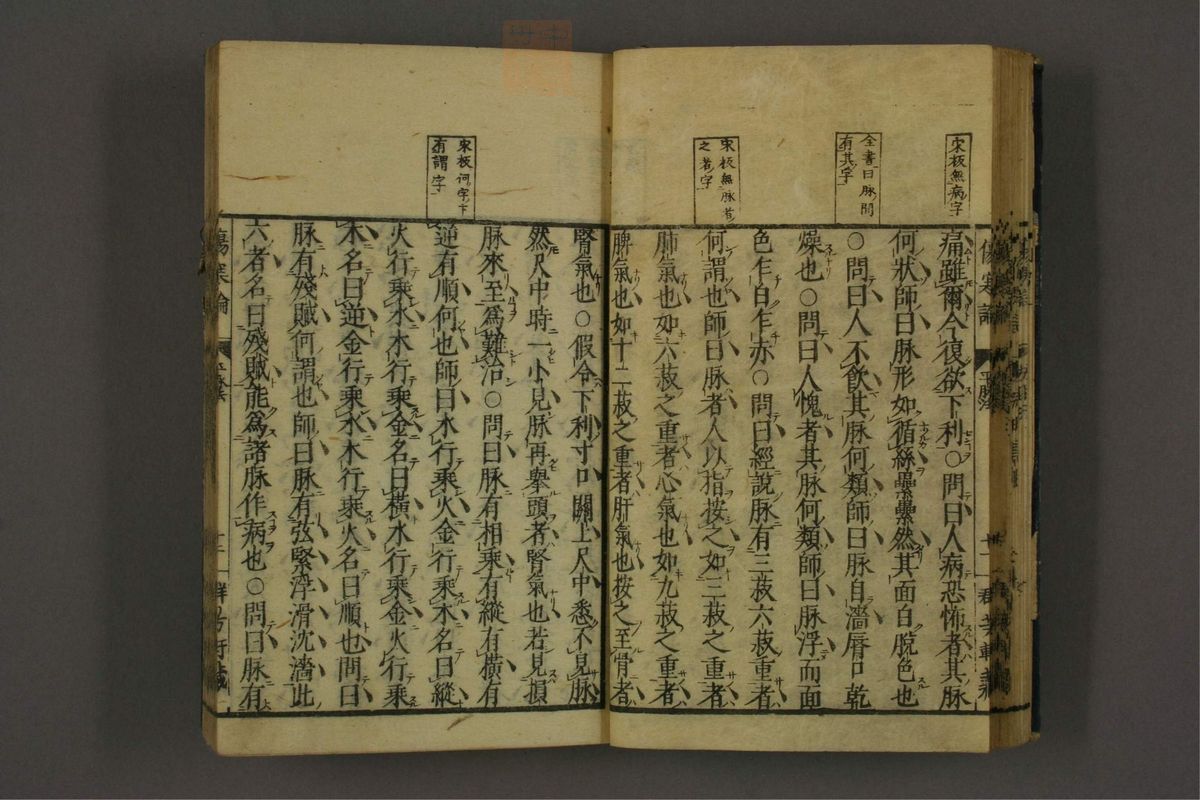 宋板無病字
全書曰脉間
有其字
宋板無脉者
之者字
痛雖爾今復欲下利○問曰人病恐怖者其脉
何狀師曰脉形如循絲纍纍然其面白脫色也
○問曰人不飲其脉何類師曰脉自濇唇口乾
燥也○問曰人愧者其脉何類師曰脉浮而面
色乍白乍赤○問曰經說脉有三菽六菽重者
何謂也師曰脉者人以指按之如三菽之重者
肺氣也如六菽之重者心氣也如九菽之重者
脾氣也如十二菽之重者肝氣也按之至骨者
宋板何字下
有謂字
腎氣也○假令下利寸口關上尺中悉不見脉
然尺中時一小見脉再舉頭者腎氣也若見損
脉來至爲難治○問曰脉有相乘有縱有橫有
逆有順何也師曰水行乘火金行乘木名曰縱
火行乘水木行乘金名曰橫水行乘金火行乘
木名曰逆金行乘水木行乘火名曰順也問曰
脉有殘賊何謂也師曰脉有弦緊浮滑沈濇此
六者名曰殘賊能爲諸脉作病也○問曰脉有
傷寒論
平脉法